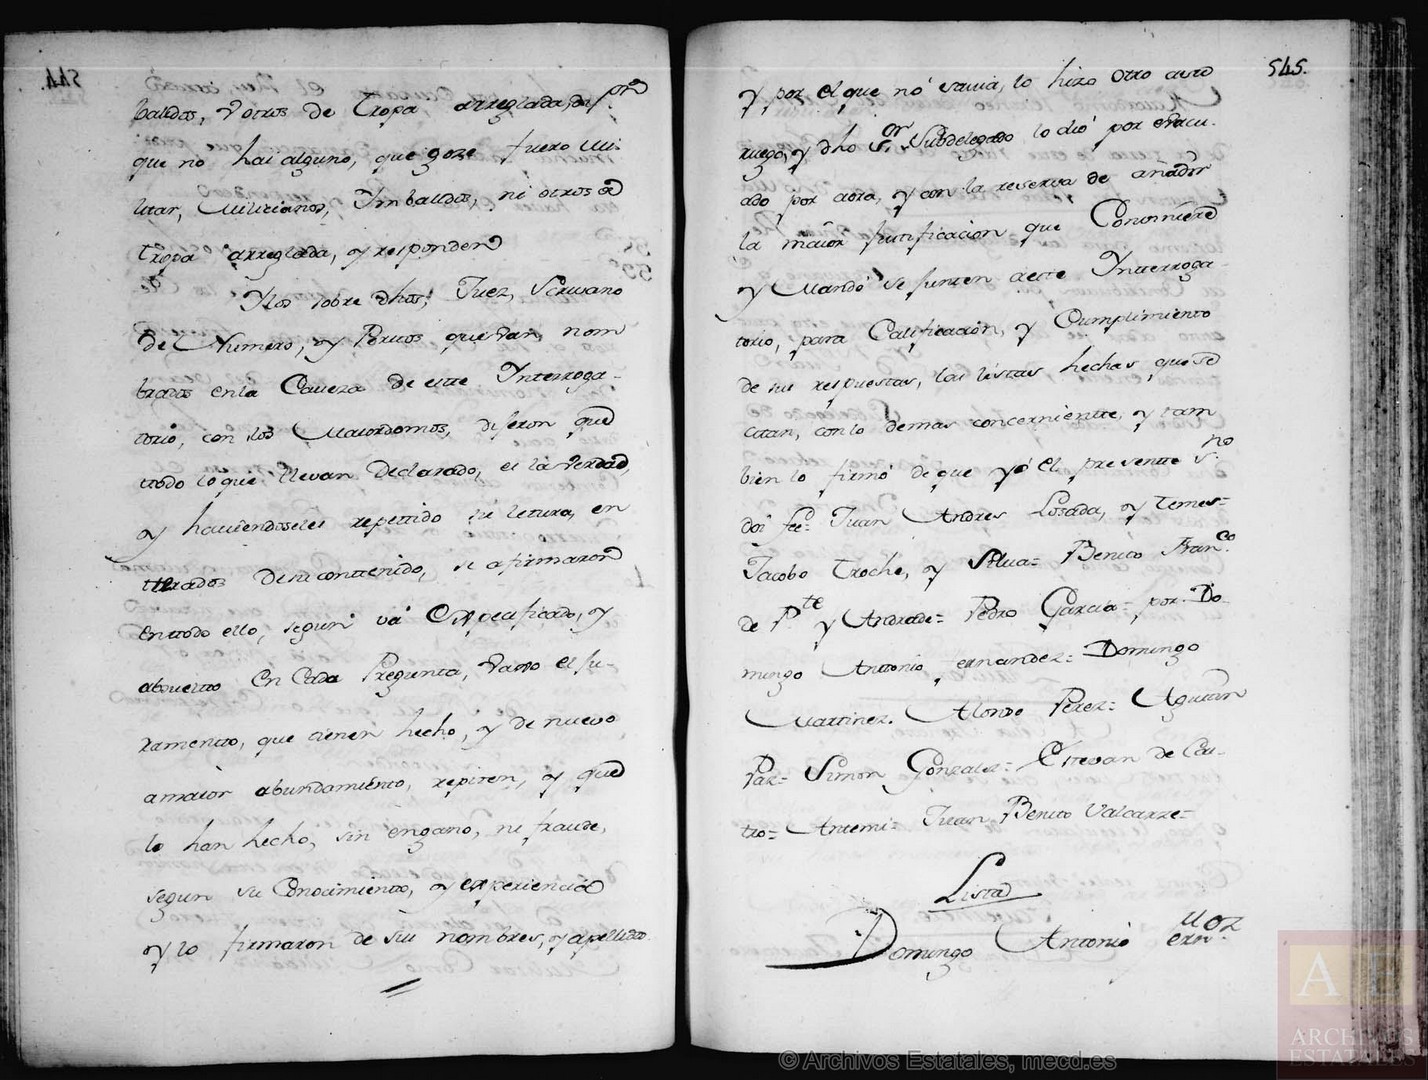 544.
balidos, y otros de tropa arreglada, dijeron
que no hai alguno, que goze fuero mi-
litar, Milicianos, Ymbalidos, ni otros de
tropa arreglada, y responden
Y los sobre dhos, Juez, Scrivano
de Numero, y Peritos que van nom
brados en la Caveza de este Ynterroga-
torio, con los Maiordomos, dijeron que
ttodo lo que llevan declarado, es la verdad,
y haviendoseles repettido su letura, en
tterados de su conttenido, se afirmaron
en ttodo ello, segun va Expecificado, y
absuelto en Cada Pregunta, vajo el ju-
ramento, que tienen hecho, y de nuevo
a maior abundamiento, repiten, y que
lo han hecho, sin engano, ni fraude,
segun su Conocimiento, y experiencia
y lo firmaron de sus nombres, y apellidos
545.
y por el que no savia, lo hizo otro a su
ruego, y dho Sr. Subdelegado lo dió por evacu-
ado por aora, y con la reserva de añadir
la maior justificacion que Conviniere
y Mandó se junten a este Ynterroga-
torio, para Calificacion, y Cumplimiento
de sus respuestas, las listas hechas, que se
citan, con lo demas concerniente, y tam
bien lo firmó de que yó el presentte Sno.
doi fee= Juan Andres Losada, y Temes=
Jacobo Troche, y Silva= Benito Franco.
de Pte. y Andrade= Pedro Garcia= por Do-
mingo Antonio Fernandez= Domingo
Martinez. Alonso Perez= Agustin
Paz= Simon Gonzalez= Estevan de Cas-
tro= Antemi= Juan Benito Valcarze=
Lista
Domingo Antonio